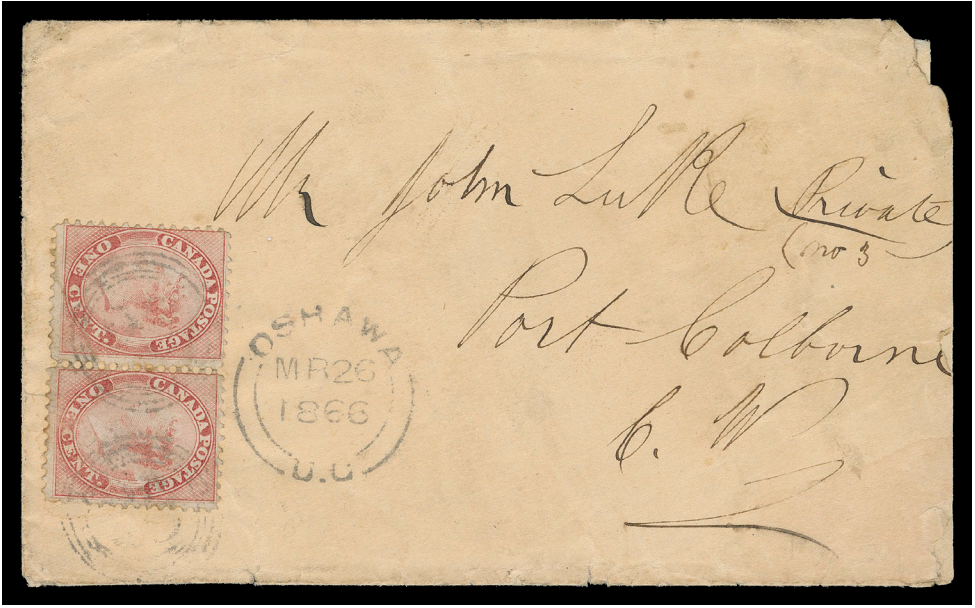 Mr John Luke Private
(no 3
Port Colborne
C. W
CANADA POSTAGE
ONE CENT
CANADA POSTAGE
ONE CENT
OSHAWA
MR 26
1866
U.C